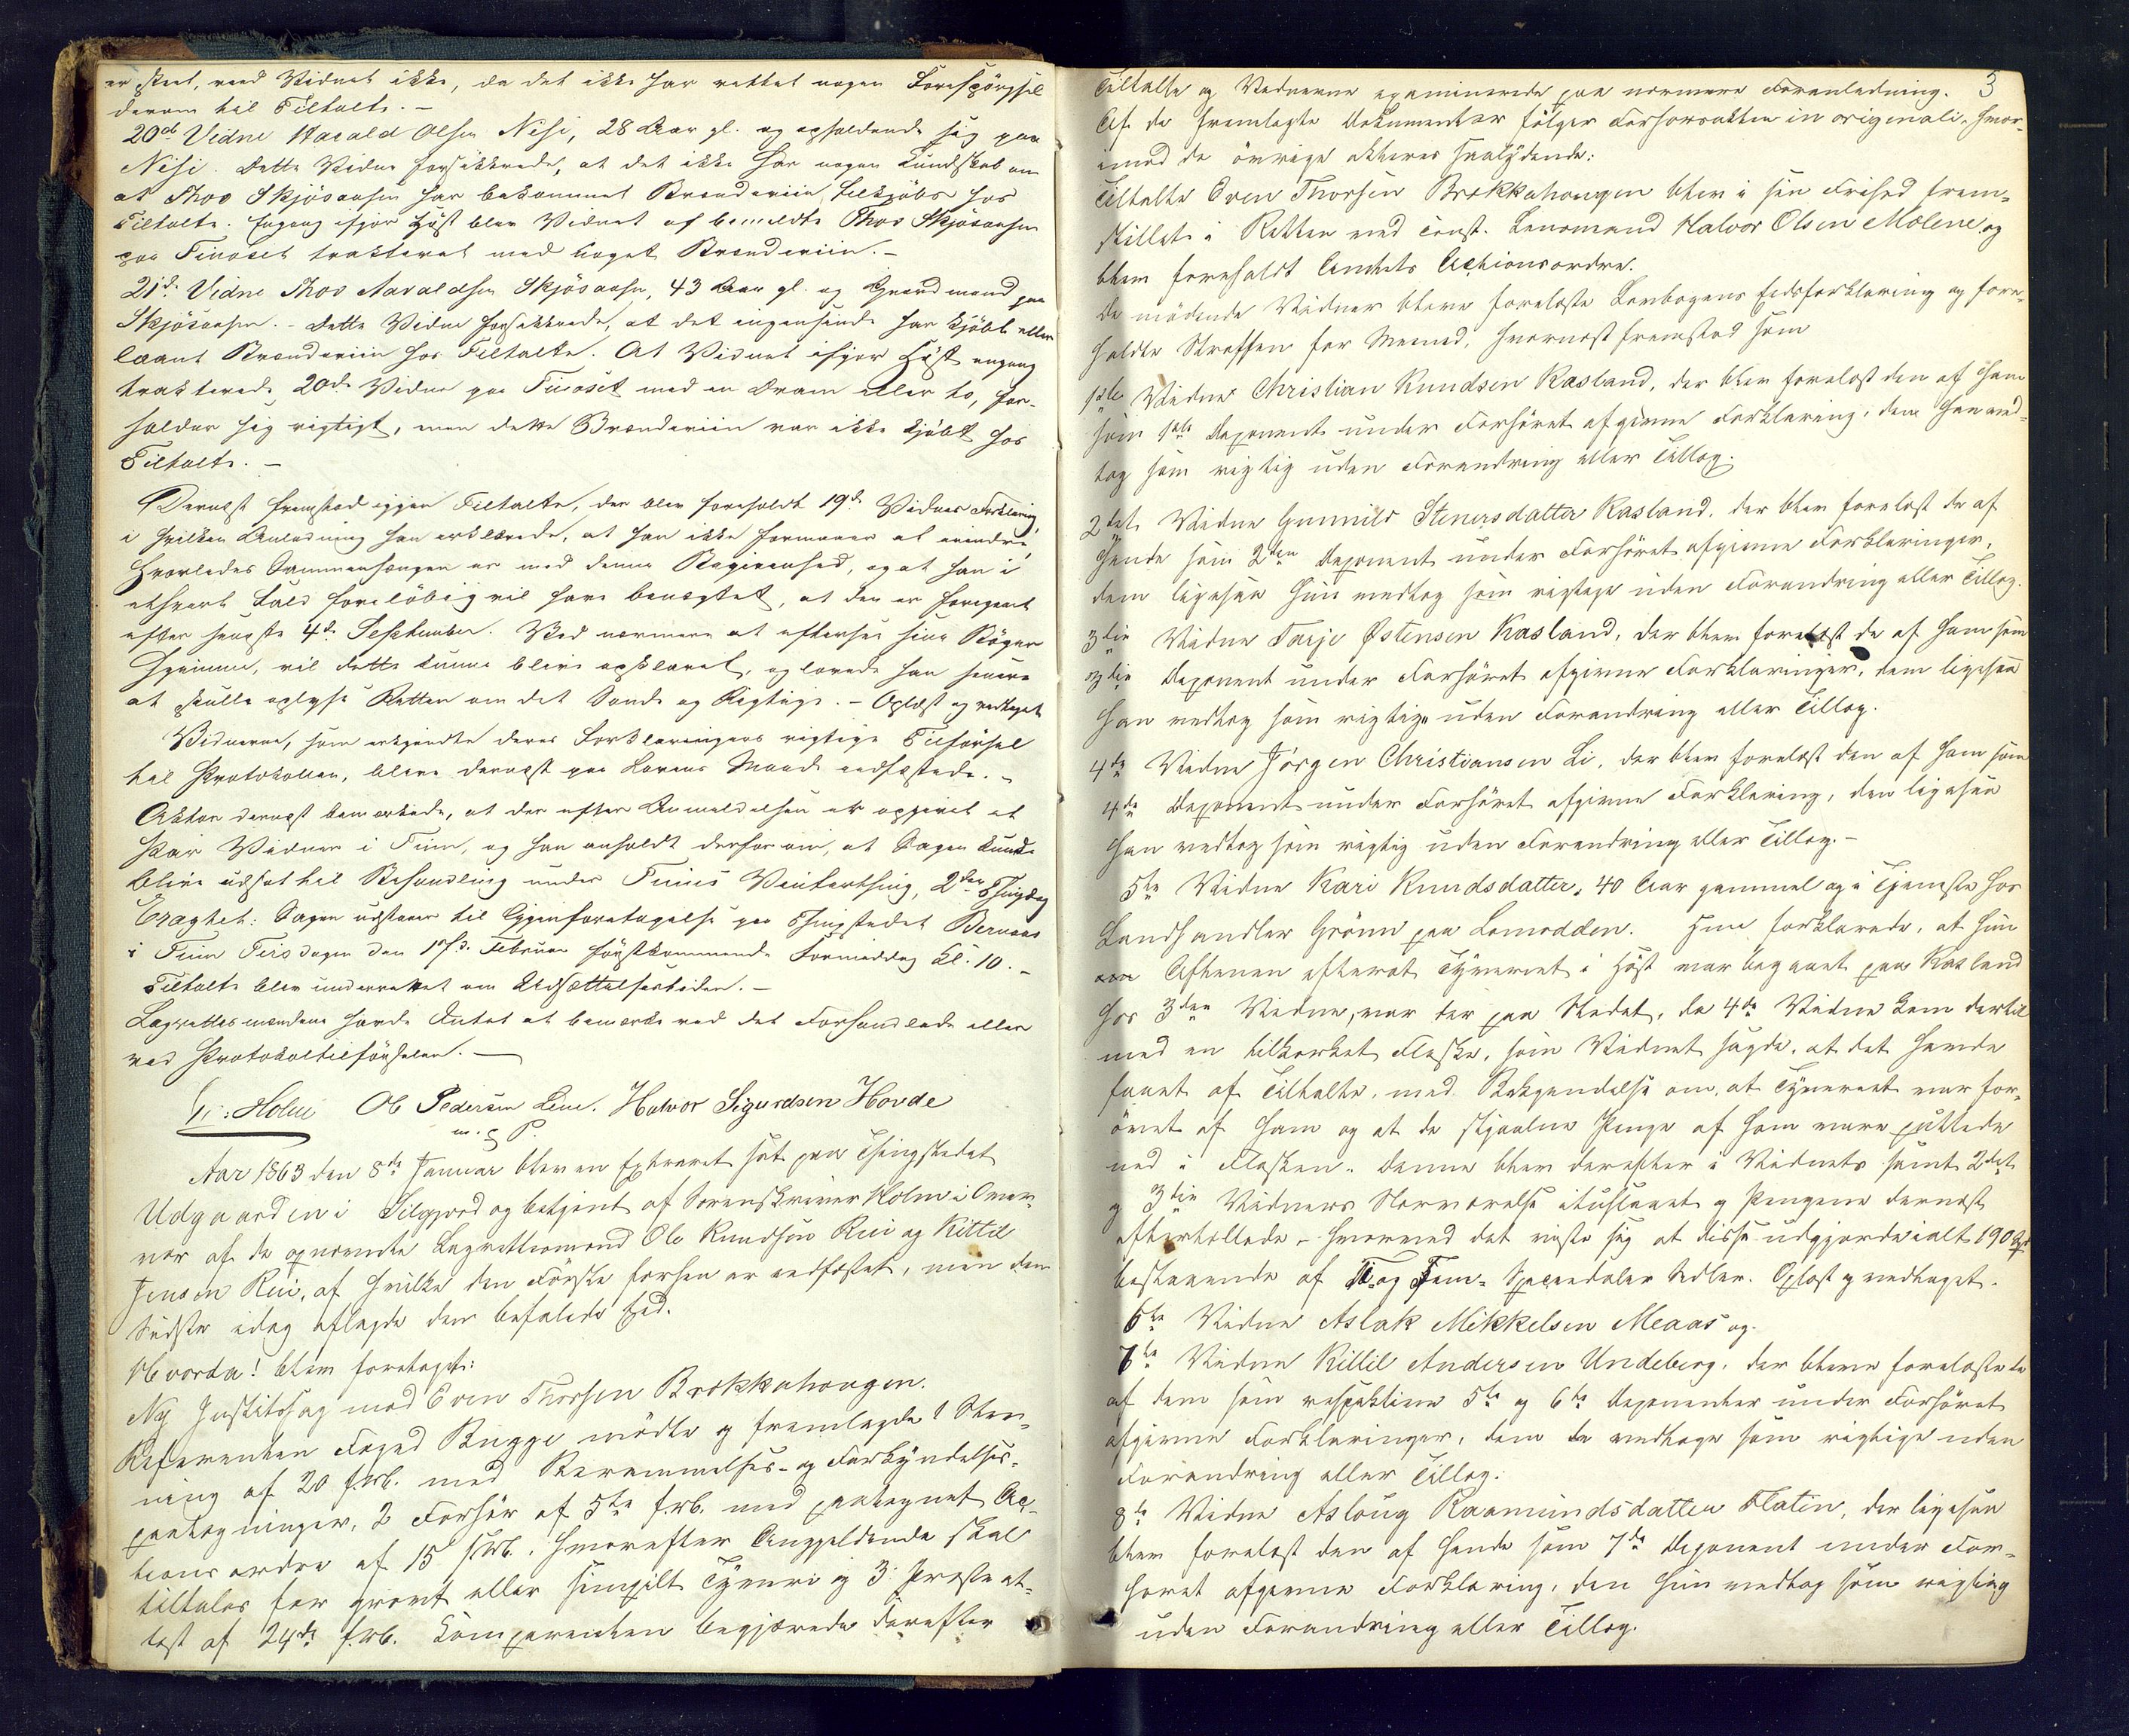 er skeet, veed Vidnet ikke, da det ikke har rettet nogen Forespörgsel
derom til Tiltalte. –
20de Vidne Harald Olsen Nisi, 28 Aar gl. og opholdende sig paa
Nisi. Dette Vidne forsikkrede, at det ikke har nogen Kundskab om
at Thov Skjösaasen har bekommet Brændeviin tilkjöbs hos
Tiltalte. Engang ifjor Höst blev Vidnet af bemeldte Thov Skjösaasen
paa Tinoset trakteret med noget Brændeviin. –
21de Vidne Thov Aavaldsen Skjösaasen, 43 Aar gl. og Grandmand paa
Skjösaasen. – Dette Vidne forsikkrede, at det ingensinde har kjöbt eller
laant Brændeviin hos Tiltalte. At Vidnet ifjor Höst engang
trakterede 20de Vidne paa Tinoset med en Dram eller to, for-
holder sig rigtigt, men dette Brændeviin var ikke kjöbt hos
Tiltalte. –
Dernæst fremstod igjen Tiltalte, der blev foreholdt 19de Vidnes Forklaring,
i hvilken Anledning han erklærede, at han ikke formaaer at erindre,
hvorledes Sammenhængen er med denne Begivenhed, og at han i
ethvert Fald forelöbig vil have benægtet, at den er foregaaet
efter sengste 4de September. Ved nærmere at eftersee sine Böger
hjemme, vil dette kunne blive opklaret, og lovede han senere
at skulle oplyse Retten om det Sande og Rigtige. – Oplæst og vedtaget
Vidnerne, som erkjendte deres Forklaringers rigtige Tilförsel
til Protokollen, bleve dernæst paa Lovens Maade eedfæstede. –
Aktor dernæst bemærkede, at der efter Anmeldelsen er opgivet et
Par Vidner i Tinn, og han anholdt derfor om, at Sagen kunde
blive udsat til Behandling under Tinns Vinterthing, 2den Thingdag
Eragtet: Sagen udstaaer til Gjenforetagelse paa Thingstedet Bernaas
i Tinn Tirsdagen den 17de Februar förstkommende Formiddag Kl. 10. –
Tiltalte blev underrettet om Udsættelsestiden. –
Lagrettesmændene havde Intet at bemærke ved det Forhandlede eller
ved Protokoltilförselen. –
Holm Ole Pedersen Lien. Halvor Sigurdsen Hovde
m. P.
Aar 1863 den 8de Januar blev en Extraret sat paa Thingstedet
Udgaarden i Silgjord og betjent af Sorenskriver Holm i Overvær-
vær af de opnævnte Lagrettesmænd Ole Knudsen Rui og Kittil
Jensen Rui, af hvilke den Förste forhen er eedfæstet, men den
Sidste idag aflagde den befalede Eed.
Hvorda! blev foretaget:
Ny Justitssag mod Even Thorsen Brekkehougen.
Referenten Foged Bugge mödte og fremlagde 1 Stev-
ning af 20 f.M. med Berammelses- og Forkyndelses-
paategninger, 2 Forhör af 5te f.M. med paategnet Ac-
tionsordre af 15 f.M., hvorefter Angjeldende skal
tiltales for grovt eller simpelt Tyveri og 3. Præsteat-
test af 24de f.M. Komparenten begjærede derefter
3
Tiltalte og Vidnerne examinerede paa nærmere Foranledning.
Af de fremlagte Dokumenter fölger Forhörsakten in originali, hvor-
imod de övrige akteres saalydende:
Tiltalte Even Thorsen Brekkehougen blev i sin Frihed frem-
stillet i Retten ved const. Lensmand Halvor Olsen Molene og
blev foreholdt Amtets Actionsordre.
De mödende Vidner bleve forelæste Lovbogens Eedsforklaring og fore-
holdte Straffen for Meeneed, hvornæst fremstod som
1ste Vidne Christian Knudsen Kasland, der blev forelæst den af ham
som 1ste Deponent under Forhöret afgivne Forklaring, dem han ved-
tog som rigtig uden Forandring eller Tillæg.
2det Vidne Gunnild Stenersdatter Kasland, der blev forelæst de af
hende som 2den Deponent under Forhöret afgivne Forklaringer,
dem ligesaa hun vedtog som rigtige uden Forandring eller Tillæg.
3die Vidne Tarje Østensen Kasland, der blev forelæst de af ham som
3die Deponent under Forhöret afgivne Forklaringer, dem ligesaa
han vedtog som rigtige uden Forandring eller Tillæg.
4de Vidne Jörgen Christiansen Li, der blev forelæst den af ham som
4de Deponent under Forhöret afgivne Forklaring, den ligesaa
han vedtog som rigtig uden Forandring eller Tillæg. –
5te Vidne Kari Knudsdatter, 40 Aar gammel og i Tjeneste hos
Landhandler Grönn paa Lomodden. Hun forklarede, at hun
Aftenen efterat Tyveriet i Höst var begaaet paa Kasland
hos 3die Vidne, var der paa Stedet, da 4de Vidne kom dertil
med en tilkorket Flaske, som Vidnet sagde, at det havde
faaet af Tiltalte, med Bekjendelse om, at Tyveriet var for-
övet af ham og at de stjaalne Penge af ham vare puttede
ned i Flasken. Denne blev derefter i Vidnets samt 2det
og 3die Vidners Nærværelse ituslaaet og Pengene dernæst
eftertællede – hvorved det viste sig at disse udgjorde ialt 190 Spd
bestaaende af Ti- og Fem- Speciedaler Sedler. Oplæst og vedtaget.
6te Vidne Aslak Mikkelsen Meaas og
7de Vidne Kittil Andersen Undeberg, der bleve forelæste de
af dem som respektive 5te og 6te Deponenter under Forhöret
afgivne Forklaringer, dem de vedtoge som rigtige uden
Forandring eller Tillæg.
8de Vidne Aslaug Raamundsdatter Flatin, der ligesaa
blev forelæst den af hende som 7de Deponent under For-
höret afgivne Forklaring, den hun vedtog som rigtig
uden Forandring eller Tillæg.